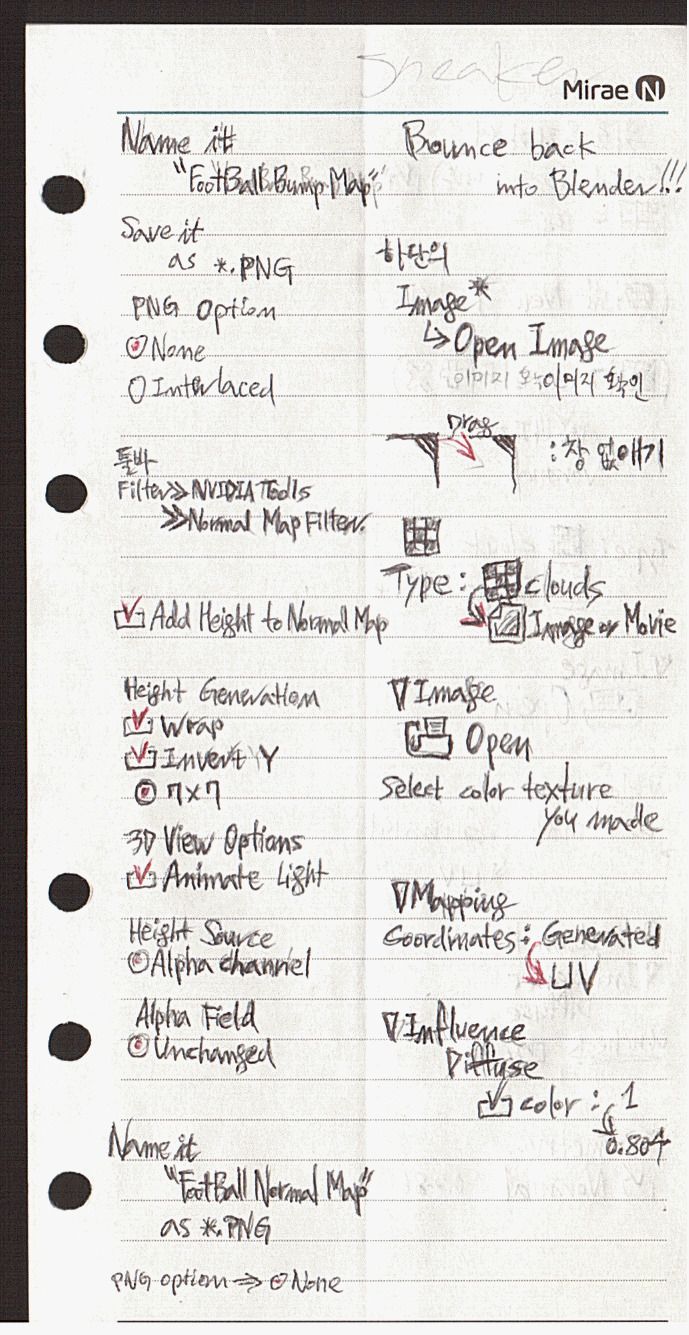 Sneaker
Mirae N
Name it
"FootBall Bump Map"
Save it
as *.PNG
PNG Option
None
Interlaced
툴바
Filter>>NVIDIA Tools
>>Normal Map Filter.
Add Height to Normal Map
Height Generation
Wrap
Invert Y
7x7
3D View Options
Animate Light
Height Source
Alpha channel
Alpha Field
Unchanged
Name it
"FootBall Normal Map"
as *.PNG
PNG option => None
Bounce back
into Blender!!!
하단의
Image*
Open Image
이미지 확인
Drag
: 창 없애기
Type : clouds
Image or Movie
Image
Open
Select color texture
you made
Mapping
Coordinates : Generated
UV
Influence
Diffuse
color : 1
0.804